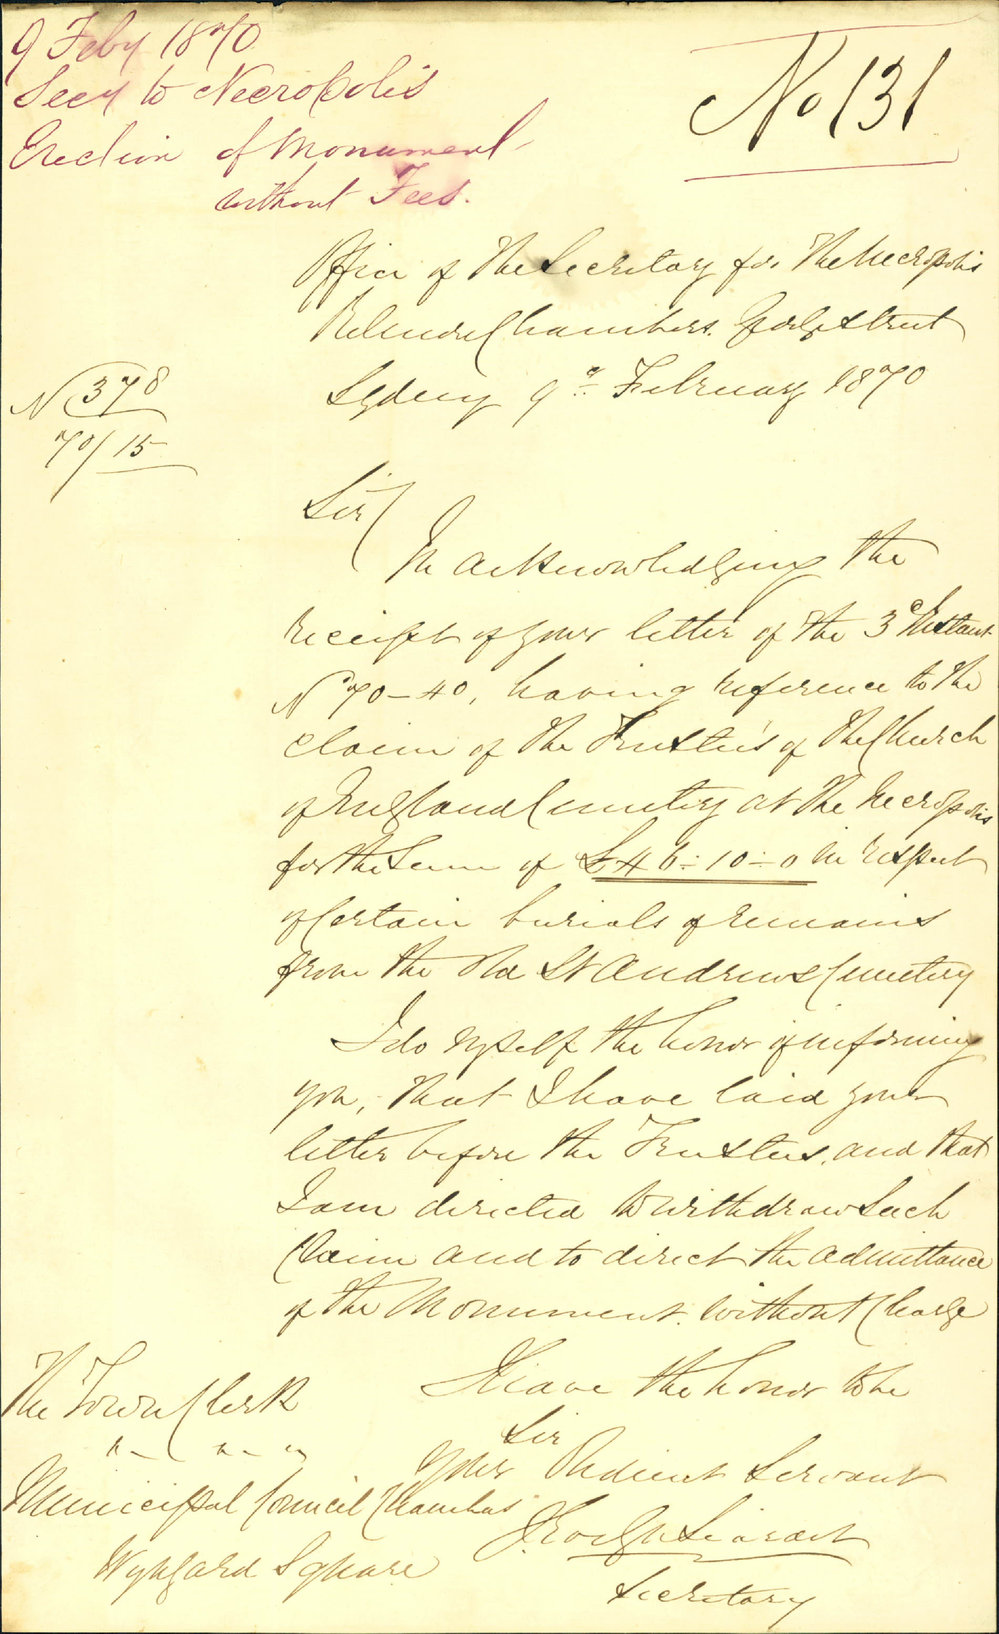 9 Feby 1870
Secy to Necropolis
Erection of Monument
without Fees.
No 131
Office of the Secretary for the Necropolis
Belmore Chambers. York Street
Sydney 9th February 1870
N 378
70/15
Sir
In acknowledging the
receipt of your letter of the 3d Instant
No 70-40, having reference to the
claim of the Trustees of the Church
of England Cemetery at the Necropolis
for the sum of £46-10-0 in respect
of certain burials of remains
from the Old St Andrews Cemetery
I do myself the honor of informing
you, that I have laid your
letter before the Trustees, and that
I am directed to withdraw such
claim and to direct the admittance
of the Monument without Charge
I have the honor to be
Sir
Your Obedient Servant
Secretary
The Town Clerk
Municipal Council Chambers
Wynyard Square